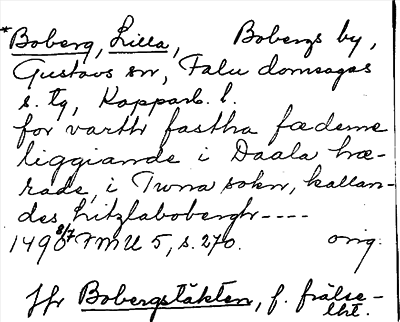 *Boberg, Lilla, Bobergs by,
Gustavs sn, Falu domsagas
s. tg, Kopparb. l.
for varthr fastha fæderne
liggiande i Daala hæ-
rade, i Twna sokn, kallan-
des Litzlabobergh----
1490 8/7 FMU 5, s. 270. orig.
Jfr Bobergstäkten, f. frälse-
lht.